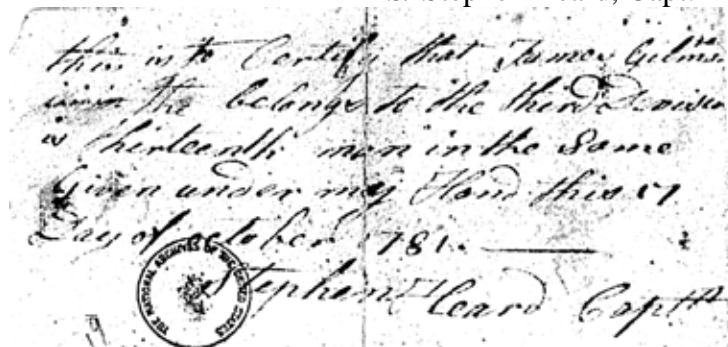 S. Stephen Heard, Capt.
this is to Certify that James Gilmr
the belongs to the third Devision
is thirteenth man in the Same
Given under my Hand this 17
Day of october 1781.
Stephen Heard Captn
THE NATIONAL ARCHIVES OF THE UNITED STATES